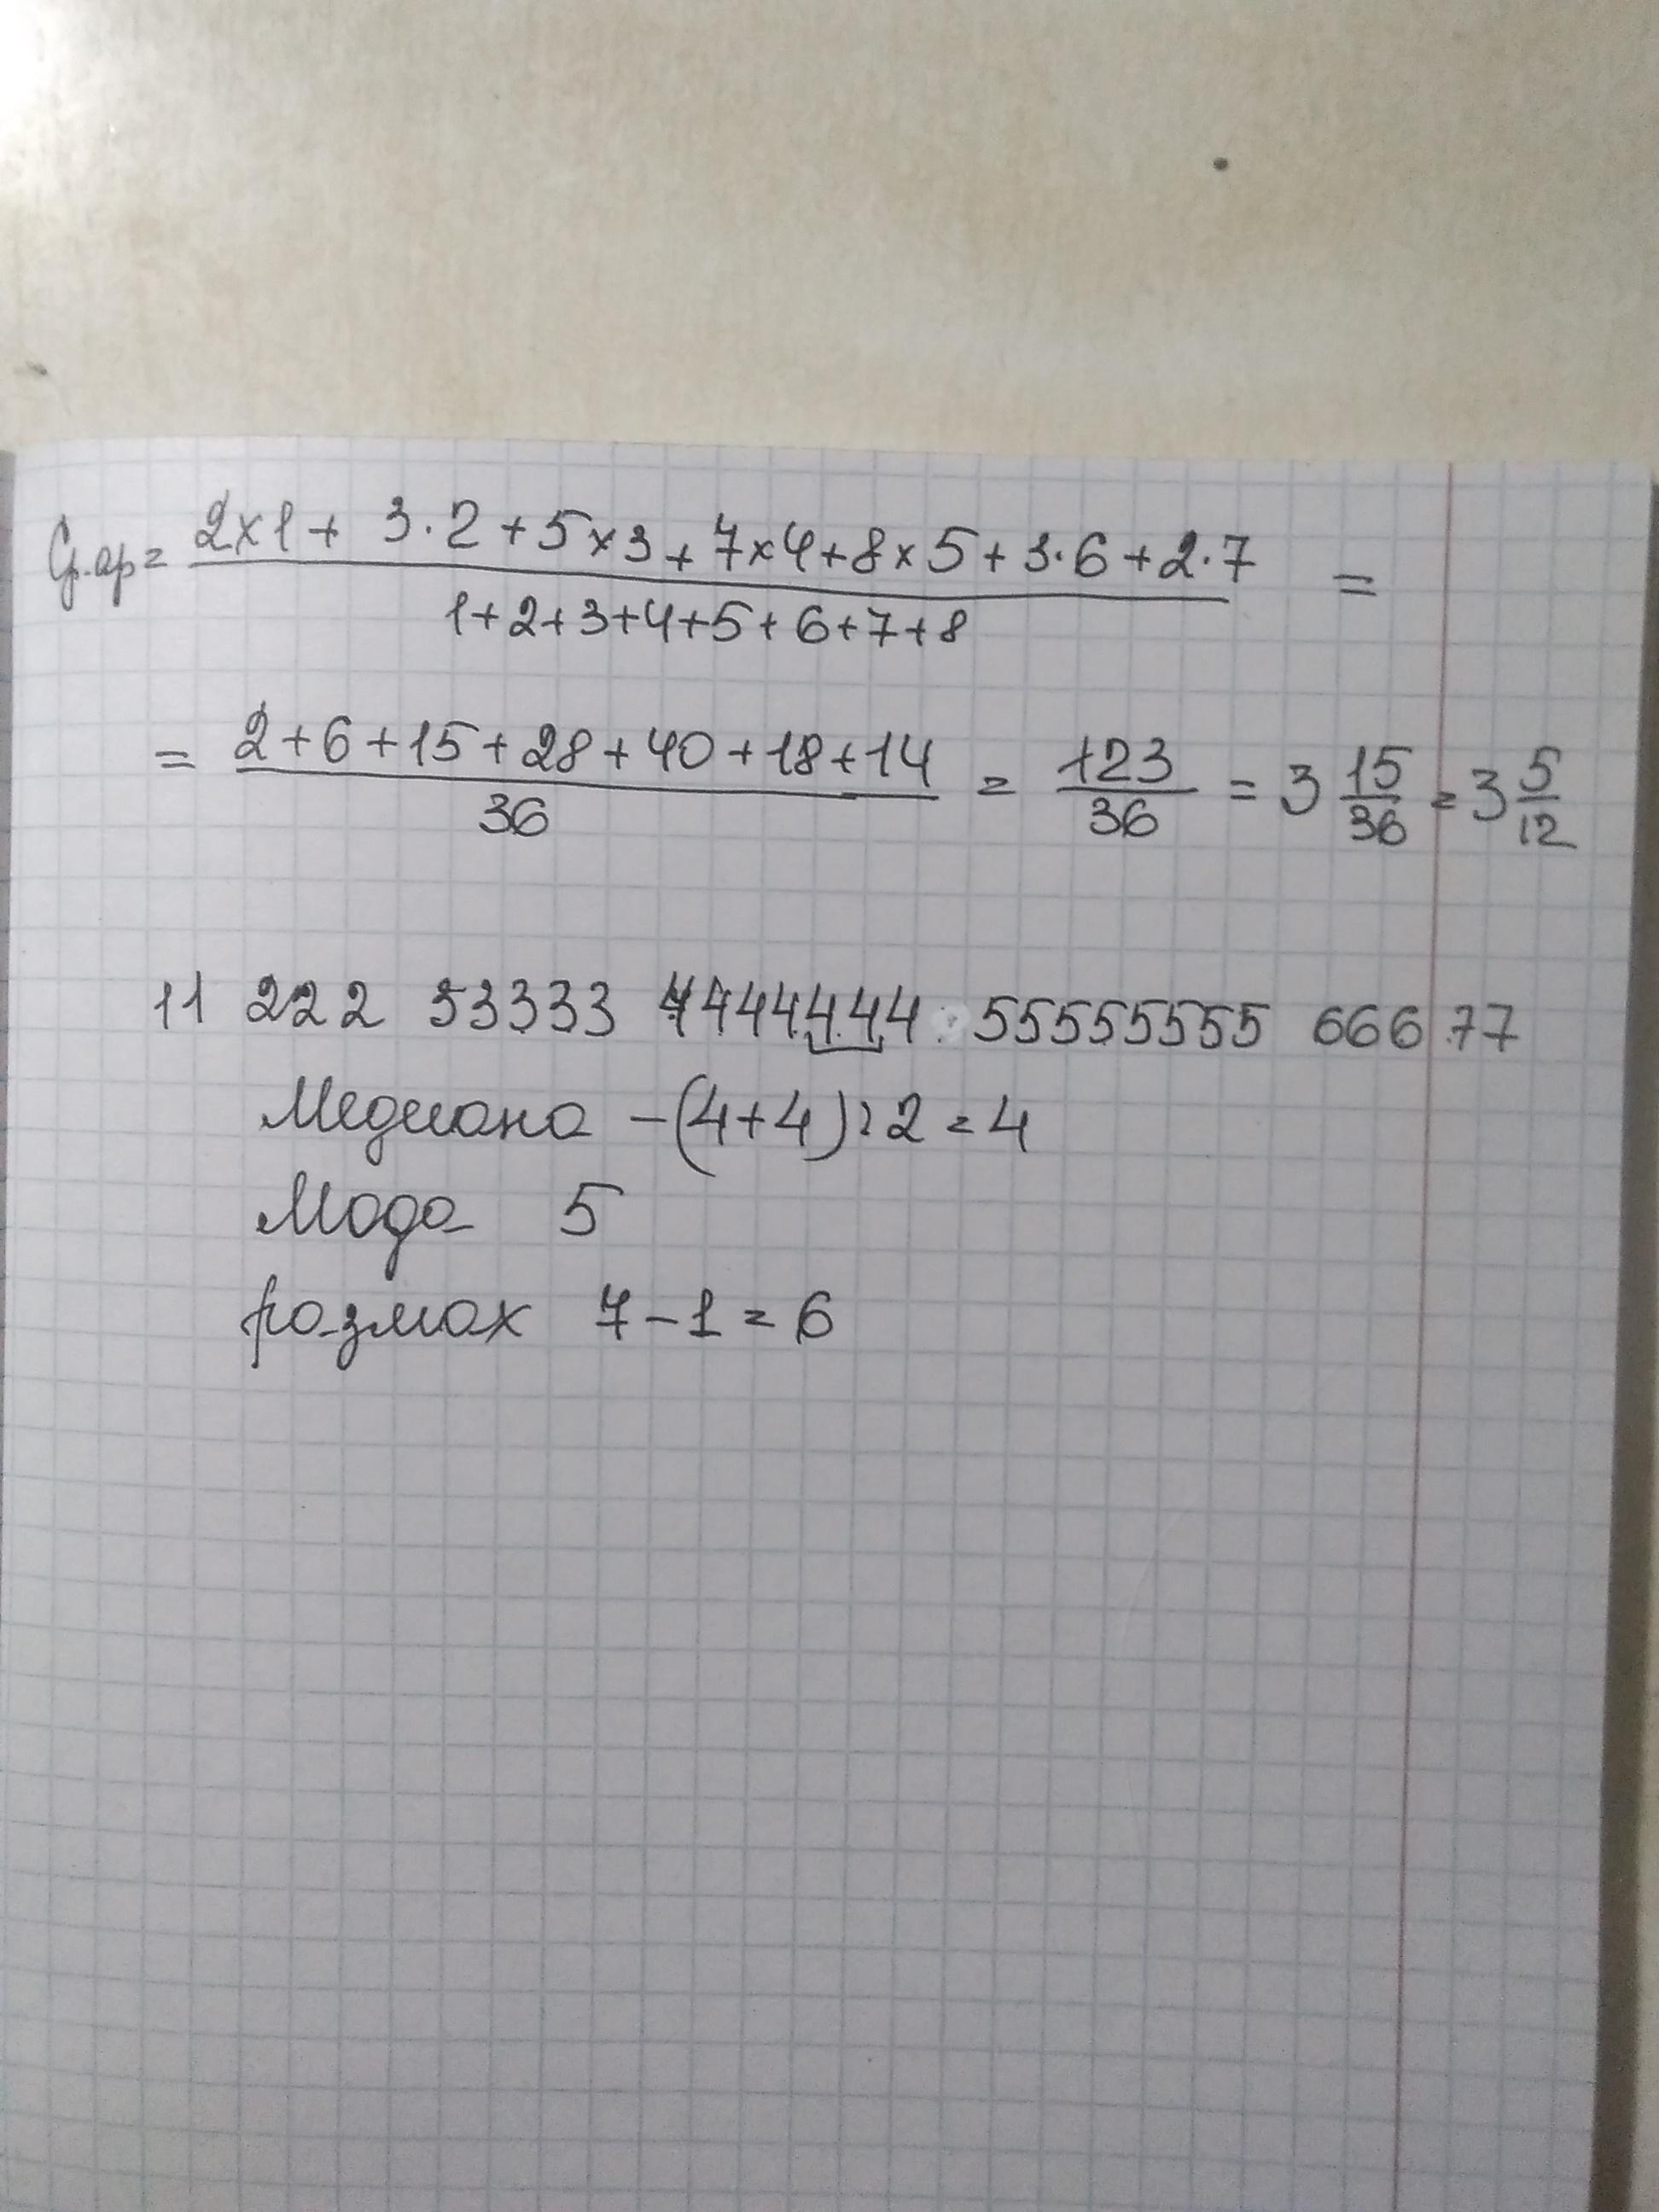 Ср.ар= (2×1+ 3·2+5×3+7×4+8×5+3·6+2·7)/(1+2+3+4+5+6+7+8) =
= (2+6+15+28+40+18+14)/36 = 123/36 = 3 15/36 = 3 5/12
11 222 33333 4444444 55555555 666 77
Медиана –(4+4):2=4
Мода 5
размах 7–1=6